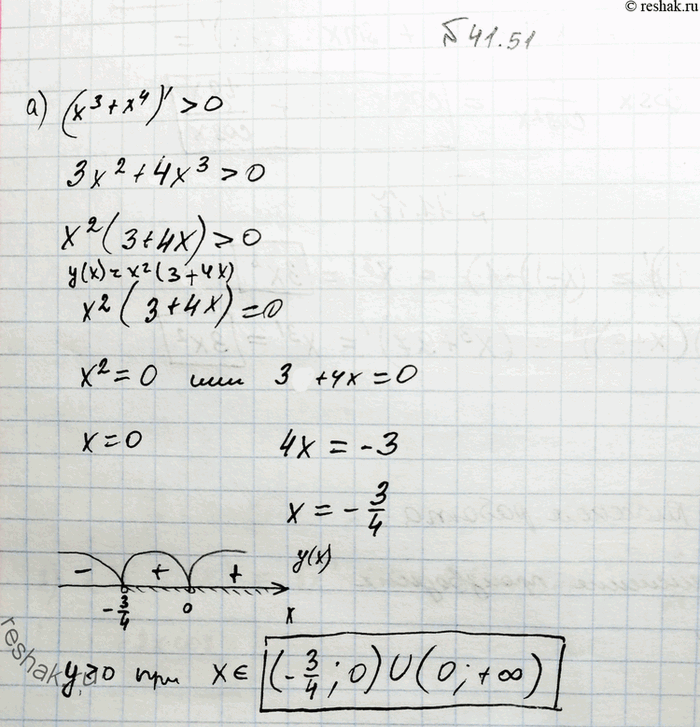 © reshak.ru
№ 41.51
а) (x³ + x⁴)' > 0
3x² + 4x³ > 0
x² (3 + 4x) > 0
y(x) = x² (3 + 4x)
x² (3 + 4x) = 0
x² = 0 или 3 + 4x = 0
x = 0 4x = -3
x = - 3/4
- + + y(x)
- 3/4 0 x
reshak.ru
y > 0 при x ∈ (- 3/4 ; 0) ∪ (0 ; +∞)